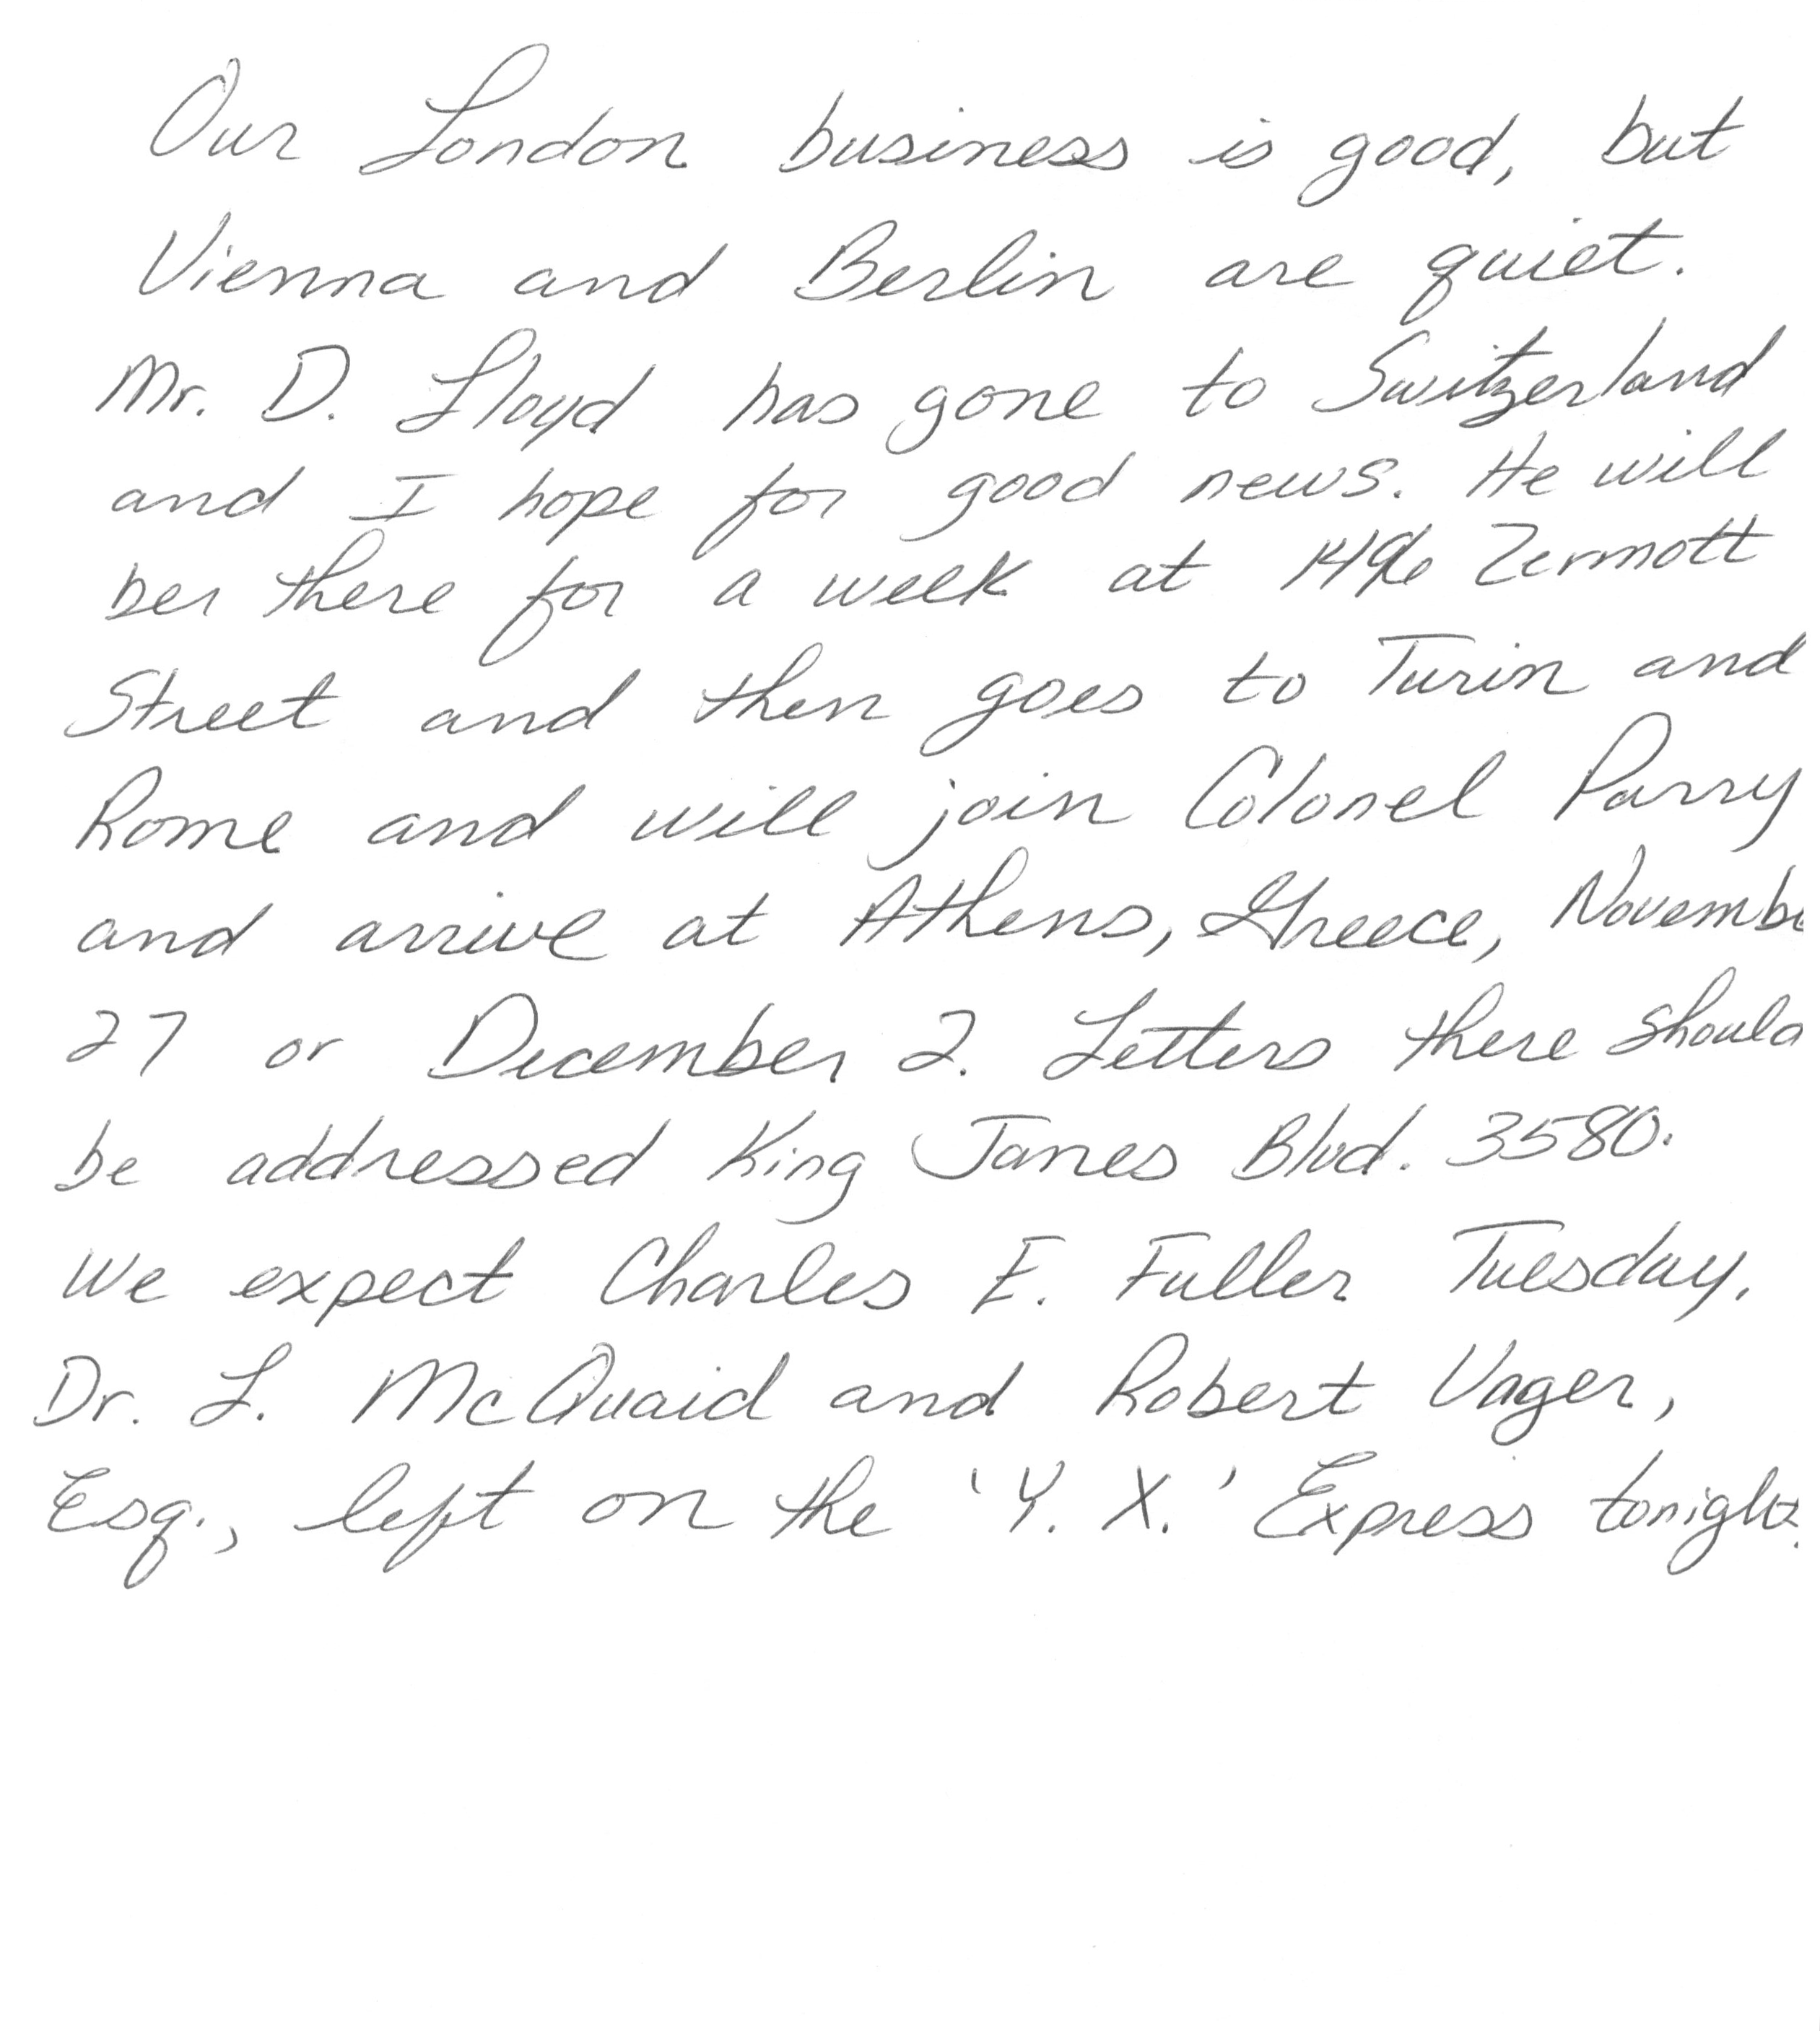 Our London business is good, but
Vienna and Berlin are quiet.
Mr. D. Lloyd has gone to Switzerland
and I hope for good news. He will
ber there for a week at Zermott
Street and then goes to Turin and
Rome and will join Colonel Parry
and arrive at Athens, Greece, Novembe
27 or December 2. Letters there should
be addressed King James Blvd. 3580.
We expect Charles E. Fuller Tuesday.
Dr. L. McQuaid and Robert Unger,
Esq., left on the 'Y. X.' Express tonight.